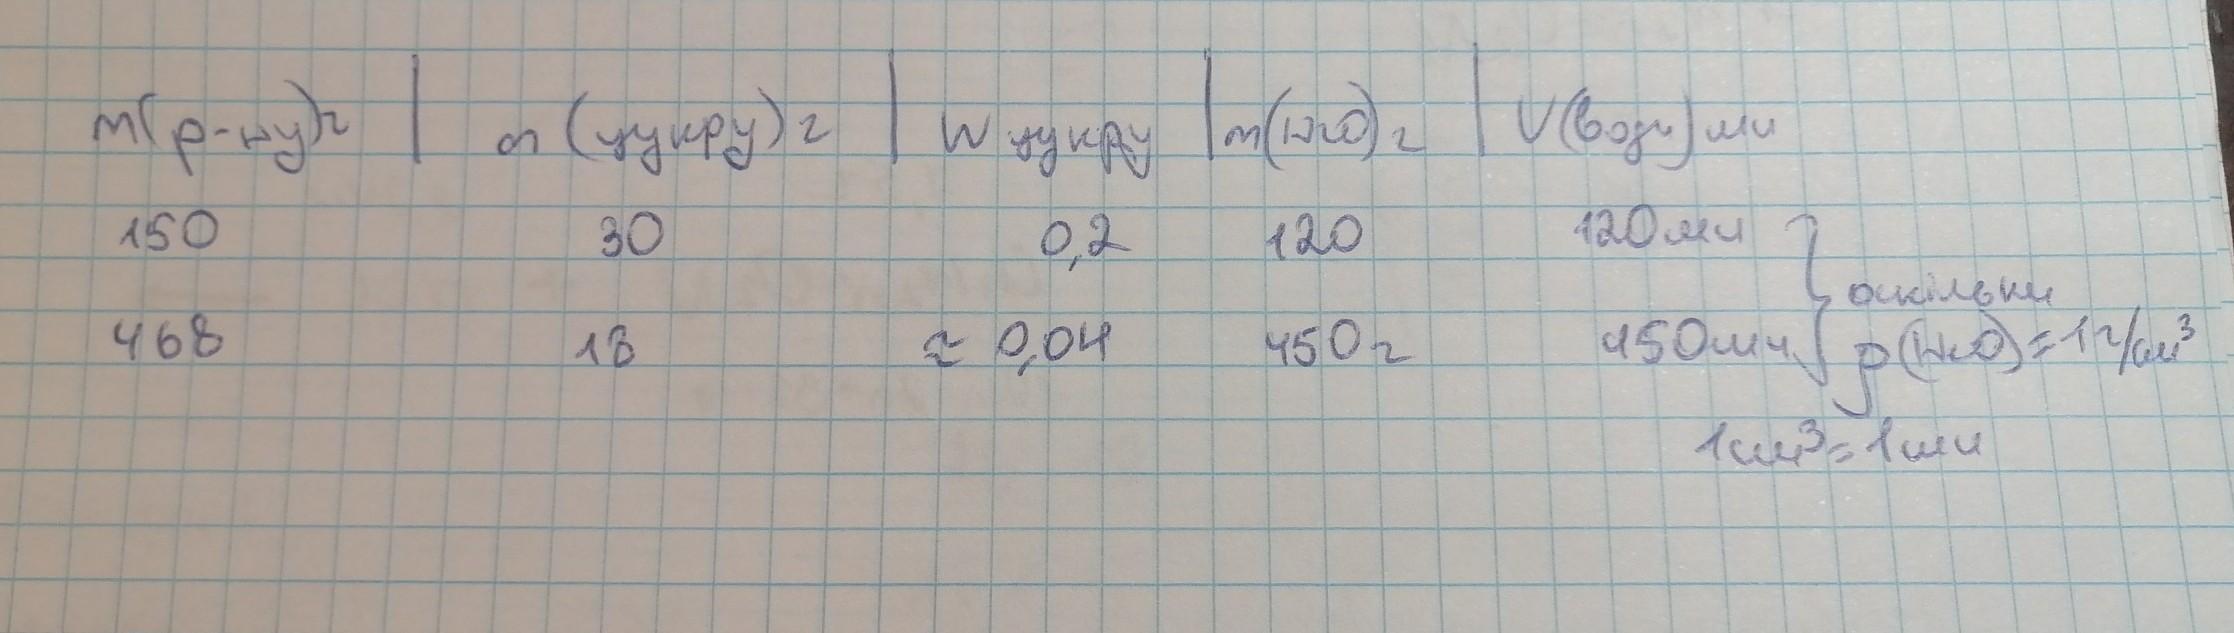 m(р-ну)г | m (цукру) г | W цукру | m(H₂O) г | V(води) мл
150 30 0,2 120 120мл
оскільки
468 18 ≈ 0,04 450г 450мл ρ(H₂O)=1г/см³
1см³=1мл